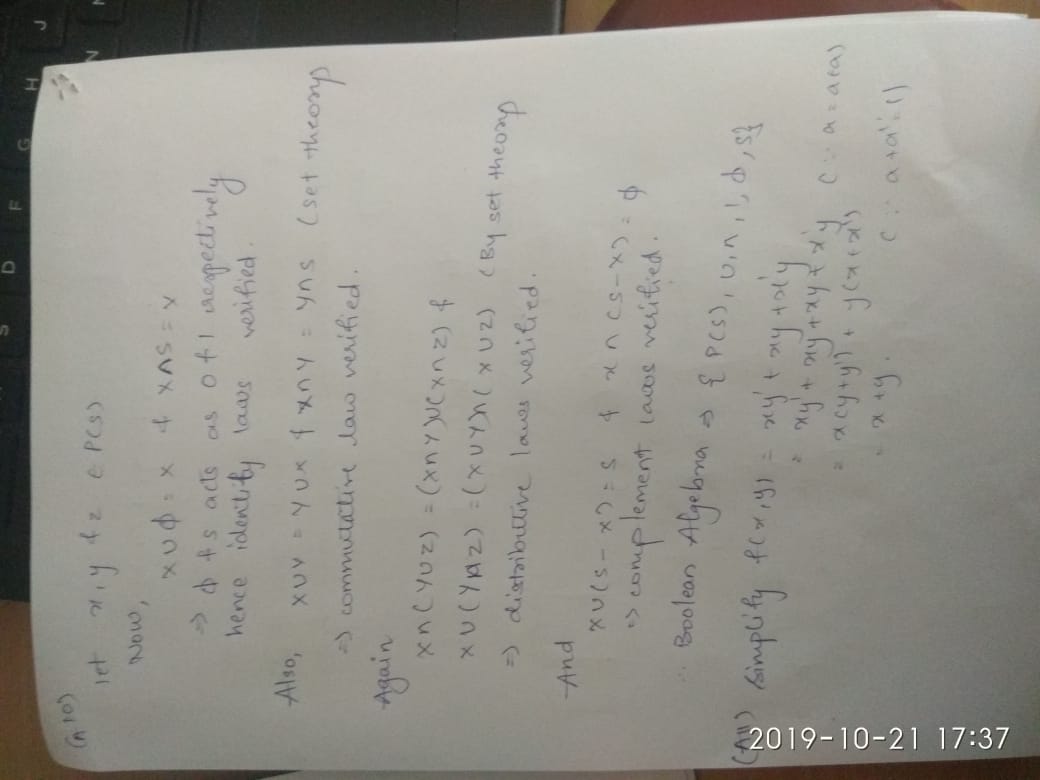 (A10)
let x, y & z ∈ P(S)
Now,
X ∪ ϕ = X & X ∩ S = X
⇒ ϕ & S acts as 0 & 1 respectively
hence identity laws verified.
Also, X ∪ Y = Y ∪ X & X ∩ Y = Y ∩ S (set theory)
⇒ commutative law verified.
Again
X ∩ (Y ∪ Z) = (X ∩ Y) ∪ (X ∩ Z) &
X ∪ (Y ∩ Z) = (X ∪ Y) ∩ (X ∪ Z) (By set theory)
⇒ distributive laws verified.
And
X ∪ (S - X) = S & X ∩ (S - X) = ϕ
⇒ complement laws verified.
∴ Boolean Algebra ⇒ { P(S), ∪, ∩, ', ϕ, S}
(A11) Simplify f(x, y) = xy' + xy + x'y
= xy' + xy + xy + x'y (∵ a = a+a)
= x(y+y') + y(x+x')
= x+y. (∵ a+a' = 1)
2019-10-21 17:37
S D F G H J N